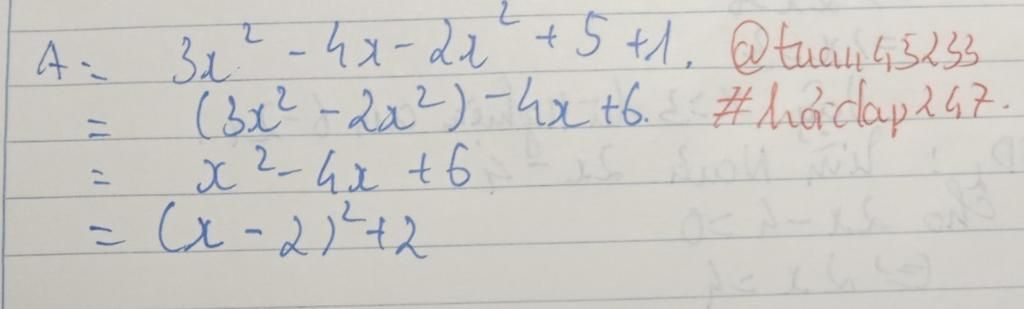 A = 3x² - 4x - 2x² + 5 + 1. @tuan45233
= (3x² - 2x²) - 4x + 6. #hỏidap247.
= x² - 4x + 6
= (x - 2)² + 2
2x - 4 = 0
2x = 4